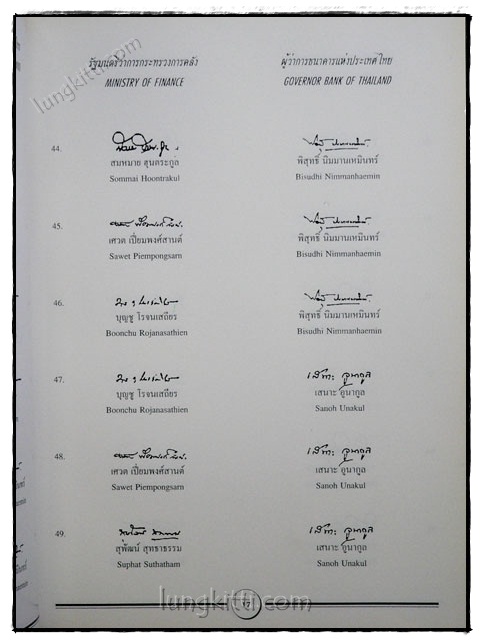 รัฐมนตรีว่าการกระทรวงการคลัง
MINISTRY OF FINANCE
ผู้ว่าการธนาคารแห่งประเทศไทย
GOVERNOR BANK OF THAILAND
lungkitti.com
44.
สมหมาย ฮุนตระกูล
Sommai Hoontrakul
พิสุทธิ์ นิมมานเหมินทร์
Bisudhi Nimmanhaemin
45.
เศวต เปี่ยมพงศ์สานต์
Sawet Piempongsarn
พิสุทธิ์ นิมมานเหมินทร์
Bisudhi Nimmanhaemin
46.
บุญชู โรจนเสถียร
Boonchu Rojanasathien
พิสุทธิ์ นิมมานเหมินทร์
Bisudhi Nimmanhaemin
47.
บุญชู โรจนเสถียร
Boonchu Rojanasathien
เสนาะ อูนากูล
Sanoh Unakul
48.
เศวต เปี่ยมพงศ์สานต์
Sawet Piempongsarn
เสนาะ อูนากูล
Sanoh Unakul
49.
สุพัฒน์ สุทธาธรรม
Suphat Suthatham
เสนาะ อูนากูล
Sanoh Unakul
lungkitti.com